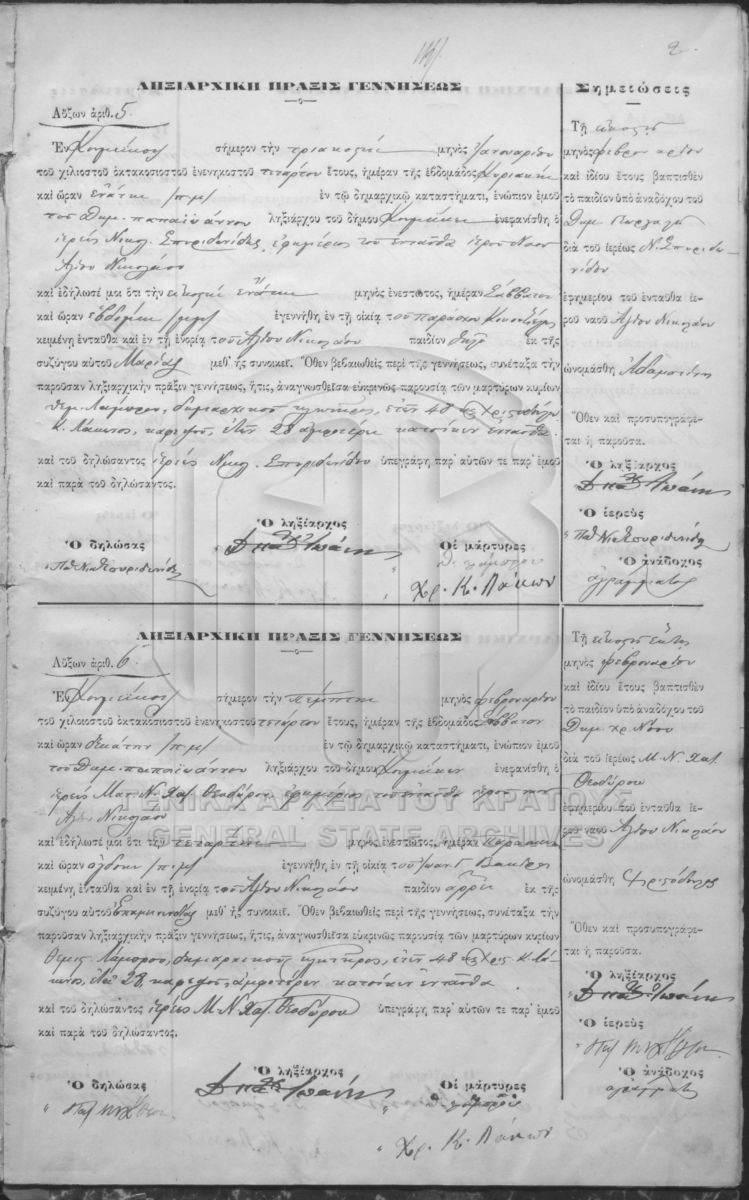 2.
ΛΗΞΙΑΡΧΙΚΗ ΠΡΑΞΙΣ ΓΕΝΝΗΣΕΩΣ
Αὔξων ἀριθ. 5.
Ἐν σήμερον τὴν τριακοστὴν μηνὸς Ἰανουαρίου
τοῦ χιλιοστοῦ ὀκτακοσιοστοῦ ἐνενηκοστοῦ τετάρτου ἔτους, ἡμέραν τῆς ἑβδομάδος Κυριακὴν
καὶ ὥραν ἐνάτην /π.μ/ ἐν τῷ δημαρχικῷ καταστήματι, ἐνώπιον ἐμοῦ
τοῦ Δημ. Παπαϊωάννου ληξιάρχου τοῦ δήμου ἐνεφανίσθη ὁ
ἱερεὺς Νικολ. Σπυριδωνίδης, ἐφημέριος τοῦ ἐνταῦθα ἱεροῦ Ναοῦ
Ἁγίου Νικολάου
καὶ ἐδήλωσέ μοι ὅτι τὴν εἰκοστὴν ἐνάτην μηνὸς ἐνεστῶτος, ἡμέραν Σάββατον
καὶ ὥραν ἑβδόμην /μ.μ/ ἐγεννήθη ἐν τῇ οἰκίᾳ τοῦ
κειμένῃ ἐνταῦθα καὶ ἐν τῇ ἐνορίᾳ τοῦ Ἁγίου Νικολάου παιδίον θῆλυ ἐκ τῆς
συζύγου αὐτοῦ Μαρίας μεθ᾽ ἧς συνοικεῖ. Ὅθεν βεβαιωθεὶς περὶ τῆς γεννήσεως, συνέταξα τὴν
παροῦσαν ληξιαρχικὴν πρᾶξιν γεννήσεως, ἥτις, ἀναγνωσθεῖσα εὐκρινῶς παρουσίᾳ τῶν μαρτύρων κυρίων
Θεμ. Λάμπρου, δημαρχικοῦ κλητῆρος, ἐτῶν 48 καὶ Χριστοδούλου
Κ. Λάκωνος, καφεπώλου, ἐτῶν 28 ἀμφοτέρων κατοίκων ἐνταῦθα
καὶ τοῦ δηλώσαντος ἱερέως Νικολ. Σπυριδωνίδου ὑπεγράφη παρ᾽ αὐτῶν τε παρ᾽ ἐμοῦ
καὶ παρὰ τοῦ δηλώσαντος.
Ὁ ληξίαρχος
Ὁ δηλώσας
Οἱ μάρτυρες
Θ. Λάμπρου
Χρ. Κ. Λάκων
Σημειώσεις
Τῇ εἰκοστῇ
μηνὸς Φεβρουαρίου
καὶ ἰδίου ἔτους βαπτισθὲν
τὸ παιδίον ὑπὸ ἀναδόχου τοῦ
Δημ.
διὰ τοῦ ἱερέως Ν. Σπυριδω-
νίδου
ἐφημερίου τοῦ ἐνταῦθα ἱε-
ροῦ ναοῦ Ἁγίου Νικολάου
ὠνομάσθη
Ὅθεν καὶ προσυπογράφε-
ται ἡ παροῦσα.
Ὁ ληξίαρχος
Ὁ ἱερεὺς
Ὁ ἀνάδοχος
ἀγράμματος
ΛΗΞΙΑΡΧΙΚΗ ΠΡΑΞΙΣ ΓΕΝΝΗΣΕΩΣ
Αὔξων ἀριθ. 6
Ἐν σήμερον τὴν πέμπτην μηνὸς Φεβρουαρίου
τοῦ χιλιοστοῦ ὀκτακοσιοστοῦ ἐνενηκοστοῦ τετάρτου ἔτους, ἡμέραν τῆς ἑβδομάδος Σάββατον
καὶ ὥραν δεκάτην /π.μ/ ἐν τῷ δημαρχικῷ καταστήματι, ἐνώπιον ἐμοῦ
τοῦ Δημ. Παπαϊωάννου ληξιάρχου τοῦ δήμου ἐνεφανίσθη ὁ
ἱερεὺς Μ. Ν. Χ΄΄ Θεοδώρου, ἐφημέριος τοῦ ἐνταῦθα ἱεροῦ ναοῦ
Ἁγίου Νικολάου
καὶ ἐδήλωσέ μοι ὅτι τὴν τετάρτην μηνὸς ἐνεστῶτος, ἡμέραν Παρασκευὴν
καὶ ὥραν ὀγδόην /π.μ/ ἐγεννήθη ἐν τῇ οἰκίᾳ τοῦ Ἰωάν. Γ.
κειμένῃ ἐνταῦθα καὶ ἐν τῇ ἐνορίᾳ τοῦ Ἁγίου Νικολάου παιδίον ἄρρεν ἐκ τῆς
συζύγου αὐτοῦ μεθ᾽ ἧς συνοικεῖ. Ὅθεν βεβαιωθεὶς περὶ τῆς γεννήσεως, συνέταξα τὴν
παροῦσαν ληξιαρχικὴν πρᾶξιν γεννήσεως, ἥτις, ἀναγνωσθεῖσα εὐκρινῶς παρουσίᾳ τῶν μαρτύρων κυρίων
Θεμιστ. Λάμπρου, δημαρχικοῦ κλητῆρος, ἐτῶν 48 καὶ Χρις. Κ. Λά-
κωνος, ἐτῶν 28, καφεπώλου, ἀμφοτέρων κατοίκων ἐνταῦθα
καὶ τοῦ δηλώσαντος ἱερέως Μ. Ν. Χ΄΄ Θεοδώρου ὑπεγράφη παρ᾽ αὐτῶν τε παρ᾽ ἐμοῦ
καὶ παρὰ τοῦ δηλώσαντος.
Ὁ ληξίαρχος
Ὁ δηλώσας
Οἱ μάρτυρες
Θ. Λάμπρου
Χρ. Κ. Λάκων
Τῇ εἰκοστῇ ἕκτῃ
μηνὸς Φεβρουαρίου
καὶ ἰδίου ἔτους βαπτισθὲν
τὸ παιδίον ὑπὸ ἀναδόχου τοῦ
Δημ. Χρ.
διὰ τοῦ ἱερέως Μ. Ν. Χ΄΄
Θεοδώρου
ἐφημερίου τοῦ ἐνταῦθα ἱε-
ροῦ ναοῦ Ἁγίου Νικολάου
ὠνομάσθη Χριστόδουλος
Ὅθεν καὶ προσυπογράφε-
ται ἡ παροῦσα.
Ὁ ληξίαρχος
Ὁ ἱερεὺς
Ὁ ἀνάδοχος
ἀγράμματος
ΓΕΝΙΚΑ ΑΡΧΕΙΑ ΤΟΥ ΚΡΑΤΟΥΣ
GENERAL STATE ARCHIVES